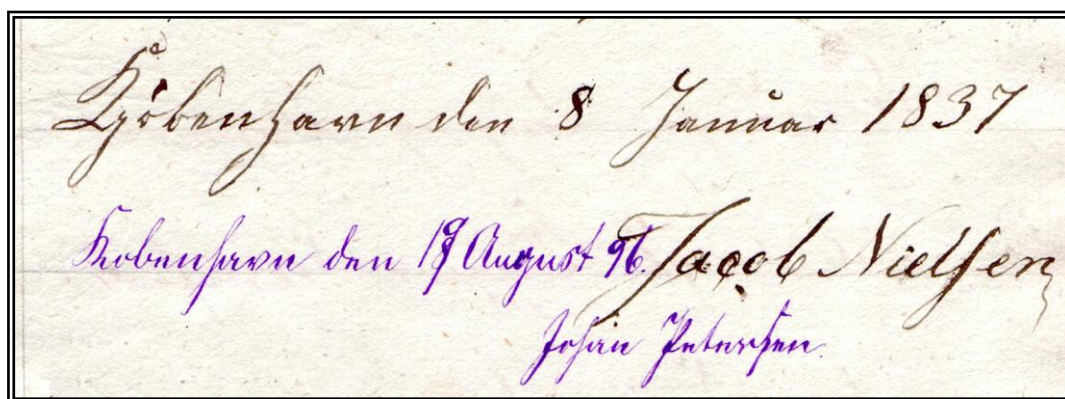 Kjöbenhavn den 8 Januar 1837
Kobenhavn den August 96. Jacob Nielsen
Johan Petersen.